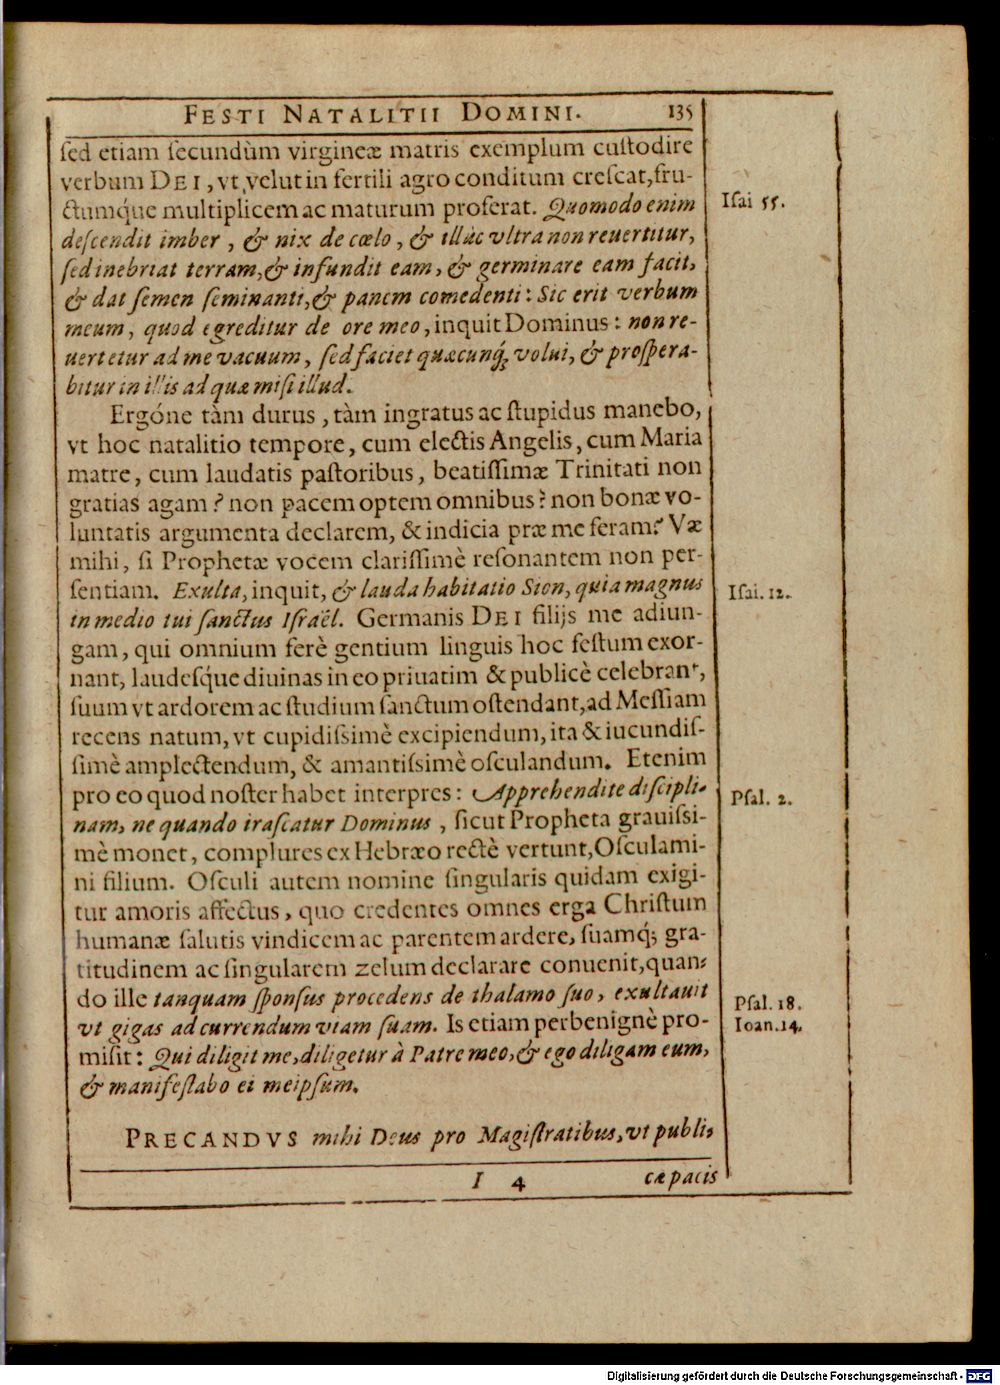 FESTI NATALITII DOMINI. 135
ſed etiam ſecundùm virgineæ matris exemplum cuſtodire
verbum DEI, vt, velut in fertili agro conditum creſcat, fru-
ctumq́ue multiplicem ac maturum proferat. Quomodo enim
Iſai 55.
deſcendit imber, & nix de cœlo, & illúc vltra non reuertitur,
ſed inebriat terram, & infundit eam, & germinare eam facit,
& dat ſemen ſeminanti, & panem comedenti: Sic erit verbum
meum, quod egreditur de ore meo, inquit Dominus: non re-
uertetur ad me vacuum, ſed faciet quæcunq́; volui, & proſpera-
bitur in illis ad quæ miſi illud.
Ergóne tàm durus, tàm ingratus ac ſtupidus manebo,
vt hoc natalitio tempore, cum electis Angelis, cum Maria
matre, cum laudatis paſtoribus, beatiſſimæ Trinitati non
gratias agam? non pacem optem omnibus? non bonæ vo-
luntatis argumenta declarem, & indicia præ me feram? Væ
mihi, ſi Prophetæ vocem clariſſimè reſonantem non per-
ſentiam. Exulta, inquit, & lauda habitatio Sion, quia magnus
Iſai. 12.
in medio tui ſanctus Iſraël. Germanis DEI filijs me adiun-
gam, qui omnium ferè gentium linguis hoc feſtum exor-
nant, laudeſq́ue diuinas in eo priuatim & publicè celebrant,
ſuum vt ardorem ac ſtudium ſanctum oſtendant, ad Meſſiam
recens natum, vt cupidiſsimè excipiendum, ita & iucundiſ-
ſimè amplectendum, & amantiſsimè oſculandum. Etenim
pro eo quod noſter habet interpres: Apprehendite diſcipli-
Pſal. 2.
nam, ne quando iraſcatur Dominus, ſicut Propheta grauiſsi-
mè monet, complures ex Hebræo rectè vertunt, Oſculami-
ni filium. Oſculi autem nomine ſingularis quidam exigi-
tur amoris affectus, quo credentes omnes erga Chriſtum
humanæ ſalutis vindicem ac parentem ardere, ſuamq́; gra-
titudinem ac ſingularem zelum declarare conuenit, quan-
do ille tanquam ſponſus procedens de thalamo ſuo, exultauit
Pſal. 18.
vt gigas ad currendum viam ſuam. Is etiam perbenignè pro-
Ioan. 14.
miſit: Qui diligit me, diligetur à Patre meo, & ego diligam eum,
& manifeſtabo ei meipſum.
PRECANDVS mihi Deus pro Magiſtratibus, vt publi-
I 4 cæ pacis
Digitalisierung gefördert durch die Deutsche Forschungsgemeinschaft - DFG